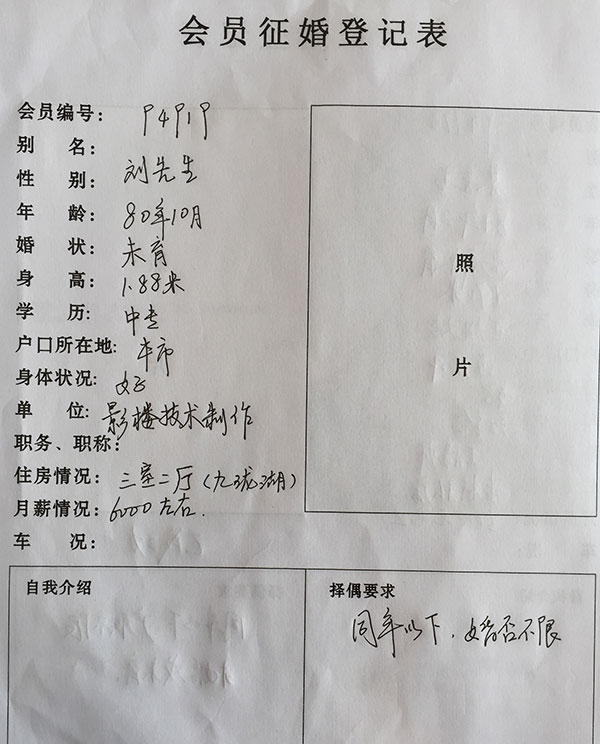 会员征婚登记表
会员编号: P4P1P
别 名:
性 别: 刘先生
年 龄: 80年10月
婚 状: 未育
身 高: 1.88米
学 历: 中专
户口所在地: 本市
身体状况: 好
单 位: 影楼技术制作
职务、职称:
住房情况: 三室二厅(九珑湖)
月薪情况: 6000左右.
车 况:
照
片
自我介绍
择偶要求
同年以下,婚否不限